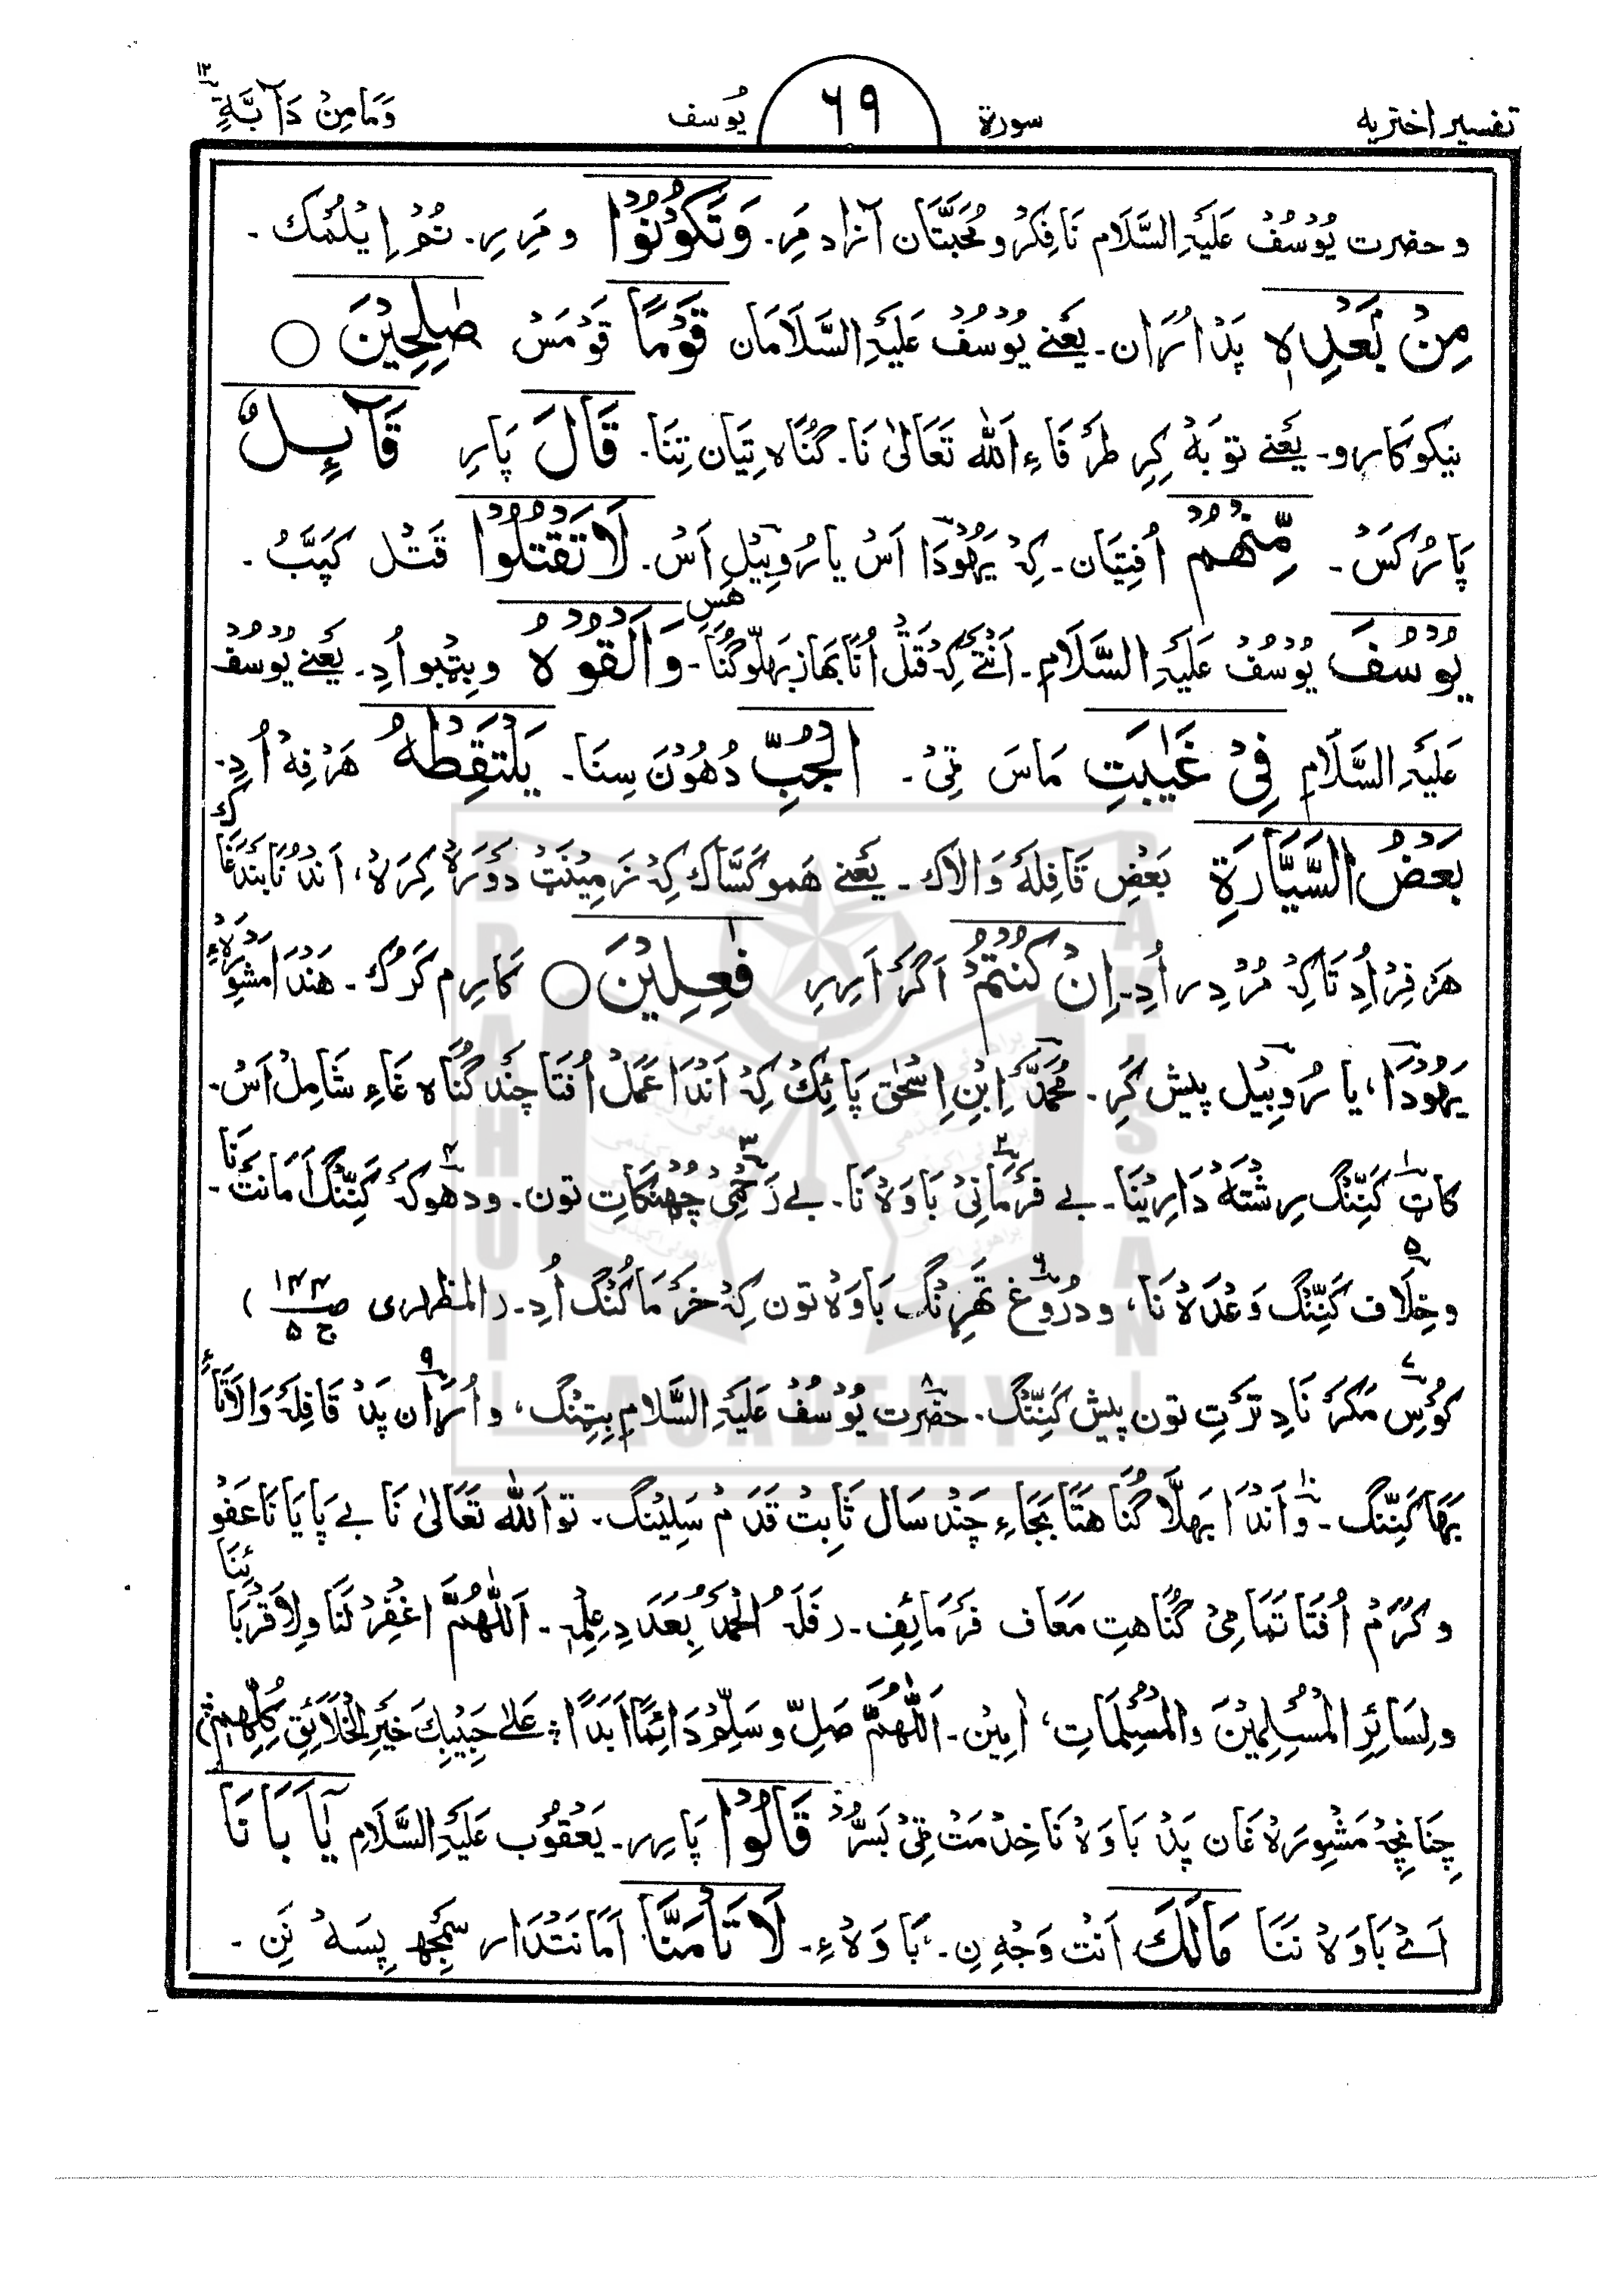 تفسیر اختریه سورة ٦٩ یُوسف وَمَا مِنْ دَآبَّةٍ ۱۲
و حضرت یُوْسُفْ عَلَیْہِ السَّلَام نَا فِکْر و مُحَبَّتَان آزاد مَرِ۔ وَتَکُوْنُوْا و مَرِیرِ۔ نُمْ اِیْلُمْک ۔
مِنْۢ بَعْدِہٖ پَدْ اُرَان۔ یَعْنِے یُوْسُفْ عَلَیْہِ السَّلَامَان قَوْمًا قَوْمَسْ صٰلِحِیْنَ ○
نیکوکارو۔ یَعْنِے تَوْبَهْ کِرِ طَرَفَاءِ اَللّٰه تَعَالیٰ نَا۔ گُنَاہ تِیَان تِنَا۔ قَالَ پَارِ قَآئِلٌ
پَارُکَسْ۔ مِّنْهُمْ اُفتِیَان۔ کِہْ یَهُوْدَا اَسْ یا رُوبِیْل اَسْ۔ لَا تَقْتُلُوْا قَتْل کَپَبُ ۔
یُوْسُفَ یُوْسُفْ عَلَیْہِ السَّلَامِ۔ اَنْتَےْ کِہْ قَتْل اُنَا بھاز بَهَلُّو گُنَاہَسِ۔ وَاَلْقُوْہُ و بِتِبُو اُدِ۔ یَعْنِے یُوْسُفْ
عَلَیْہِ السَّلَامِ فِیْ غَیٰبَتِ مَاسَ تِیْ۔ الْجُبِّ دُهُوْنَ سِنَا۔ یَلْتَقِطْهُ هَرْفِهْ اُدِ۔
بَعْضُ السَّیَّارَةِ بَعْضِ قَافِلَهْ وَالَاک۔ یَعْنِے هَمو کَسَّاک کِہْ زَمِیْنَتْ دَوْرَہْ کِرَہْ، اَنْدُنَا بَنْدَغَاک
هَرْفِرْ اُدِ تَاکِہْ مُرْ دِر اُدِ۔ اِنْ کُنْتُمْ اَگَرْ اَرِیرِ فٰعِلِیْنَ ○ کَارِم کَرُک۔ هَنْدَا مَشْوِرَہْءِ
یَهُوْدَا، یا رُوبِیْل پیش کَرِ۔ مُحَمَّدْ اِبْنِ اِسْحٰق پَائِکْ کِہْ اَنْدَا عَمَلْ اُفتَا چَنْد گُنَاہ غَاءِ شَامِلْ اَسْ۔
کاٹ کَنِنْگ رِشْتَهْ دَارِیْنَا۔ بے فَرْمَانِیْ بَاوَہْ نَا۔ بے رَحْمِیْ چُهُنْکَاتِ تون۔ و دھوکَهْ کَنِنْگ اَمَانَتْ نَا۔
و خِلَاف کَنِنْگ وَعْدَہْ نَا، و دُرُوْغ تَهْرِنْگ بَاوَہْ تون کِہْ خَرْمَا کُنْگ اُدِ۔ (المظهری ص۱۴۴ ج۵)
کُوْسِ مَکْرْ نَا دِتَرْتِ تون پیش کَنِنْگ۔ حضرت یُوْسُفْ عَلَیْہِ السَّلَام بِتِنْگ، و اُرَان پَدْ قَافِلَهْ وَالَاتَاءِ
بَهَا کَنِنْگ۔ وَ اَنْدَا بَهَلَّا گُنَاهتَا بَجَاءِ چَنْد سَال ثَابِتْ قَدَمْ سَلِیْنْگ۔ تو اَللّٰه تَعَالیٰ نَا بے پَایَا نَا عَفْو
و کَرَمْ اُفتَا تَمَامِیْ گُنَاهتِ مَعَاف فَرْمَائِفِ۔ (فَلَہُ الْحَمْدُ بِعَدَدِ عِلْمِہٖ۔ اَللّٰهُمَّ اغْفِرْ لَنَا وَلِاَقْرِبَائِنَا
وَلِسَائِرِ الْمُسْلِمِیْنَ وَالْمُسْلِمَاتِ، اٰمِیْن۔ اَللّٰهُمَّ صَلِّ وَسَلِّمْ دَائِمًا اَبَدًا ؛ عَلٰے حَبِیْبِكَ خَیْرِ الْخَلَائِقِ کُلِّهِمْ)
چِنَانْچِہْ مَشْوِرَہْ غَان پَدْ بَاوَہْ نَا خِدْمَتْ تِیْ بَسُّرْ قَالُوْا پَارِیر۔ یَعْقُوْب عَلَیْہِ السَّلَامِ یٰٓاَبَانَا
اَےْ بَاوَہْ نَنَا مَالَكَ اَنْت وَجْهِ نِ۔ بَاوَہْءِ۔ لَا تَاْمَنَّا اَمَانَتْدَار سَمَجْھ پِسَهْ نَنِ ۔